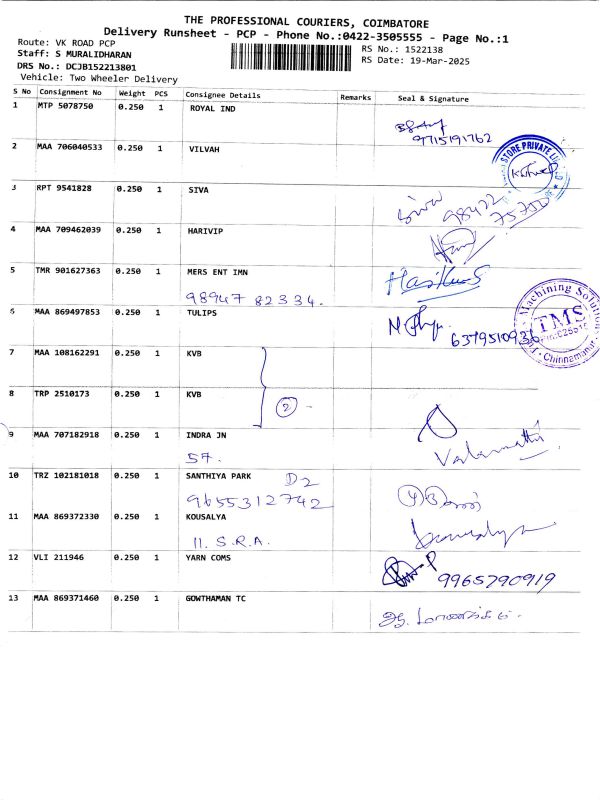 THE PROFESSIONAL COURIERS, COIMBATORE
Delivery Runsheet - PCP - Phone No.:0422-3505555 - Page No.:1
Route: VK ROAD PCP
Staff: S MURALIDHARAN
DRS No.: DCJB152213801
Vehicle: Two Wheeler Delivery
RS No.: 1522138
RS Date: 19-Mar-2025
S No Consignment No Weight PCS Consignee Details Remarks Seal & Signature
1 MTP 5078750 0.250 1 ROYAL IND
9715191762
2 MAA 706040533 0.250 1 VILVAH
STORE PRIVATE
3 RPT 9541828 0.250 1 SIVA
Siva 98422
75750
4 MAA 709462039 0.250 1 HARIVIP
5 TMR 901627363 0.250 1 MERS ENT IMN
98947 82334.
6 MAA 869497853 0.250 1 TULIPS
6379510936
Machining Solution
TMS
Chinnamanur
7 MAA 108162291 0.250 1 KVB
8 TRP 2510173 0.250 1 KVB
2 -
9 MAA 707182918 0.250 1 INDRA JN
57.
Valarmathi
10 TRZ 102181018 0.250 1 SANTHIYA PARK D2
9655312742
11 MAA 869372330 0.250 1 KOUSALYA
11. S.R.A.
Kousalya
12 VLI 211946 0.250 1 YARN COMS
9965790919
13 MAA 869371460 0.250 1 GOWTHAMAN TC